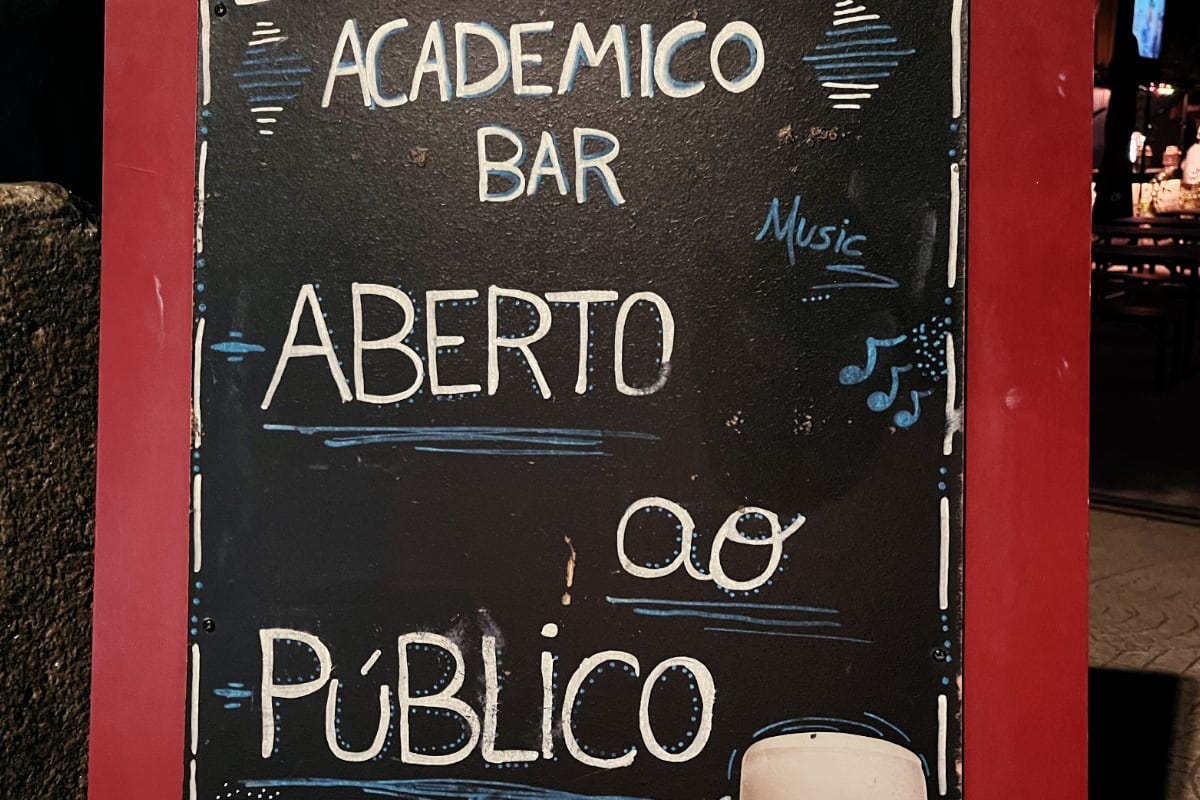 ACADEMICO
BAR
Music
ABERTO
ao
PÚBLiCO